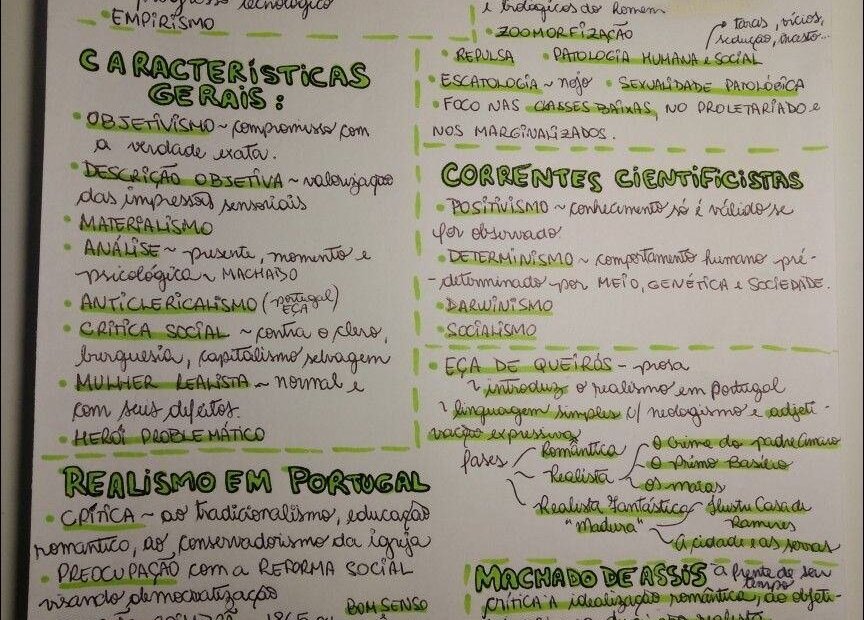 progresso tecnológico
• EMPIRISMO
CARACTERÍSTICAS
GERAIS:
• OBJETIVISMO ~ compromisso com
a verdade exata.
• DESCRIÇÃO OBJETIVA ~ valorização
das impressões sensoriais
• MATERIALISMO
• ANÁLISE ~ presente, momento e
psicológica ~ MACHADO
• ANTICLERICALISMO (portugal
EÇA)
• CRÍTICA SOCIAL ~ contra o clero,
burguesia, capitalismo selvagem
• MULHER REALISTA ~ normal e
com seus defeitos.
• HERÓI PROBLEMÁTICO
REALISMO EM PORTUGAL
• CRÍTICA ~ ao tradicionalismo, educação
romântico, ao conservadorismo da igreja
• PREOCUPAÇÃO com a REFORMA SOCIAL
visando democratização
1865
BOM SENSO
e biológicos do homem
• ZOOMORFIZAÇÃO
taras, vícios,
sedução, incesto...
• REPULSA • PATOLOGIA HUMANA e SOCIAL
• ESCATOLOGIA ~ nojo • SEXUALIDADE PATOLÓGICA
• FOCO NAS CLASSES BAIXAS, NO PROLETARIADO e
NOS MARGINALIZADOS.
CORRENTES CIENTIFICISTAS
• POSITIVISMO ~ conhecimento só é válido se
for observado
• DETERMINISMO ~ comportamento humano pré-
-determinado por MEIO, GENÉTICA e SOCIEDADE.
• DARWINISMO
• SOCIALISMO
• EÇA DE QUEIRÓS - prosa
introduz o realismo em Portugal
linguagem simples c/ neologismo e adjeti-
vação expressiva
fases
Romântica
Realista
O Crime do padre Amaro
O Primo Basílio
os maias
Realista Fantástica
"Madura"
Ilustre Casa de
Ramires
A cidade e as serras
MACHADO DE ASSIS à frente de seu
tempo
CRÍTICA À idealização romântica, ao objeti-
realista